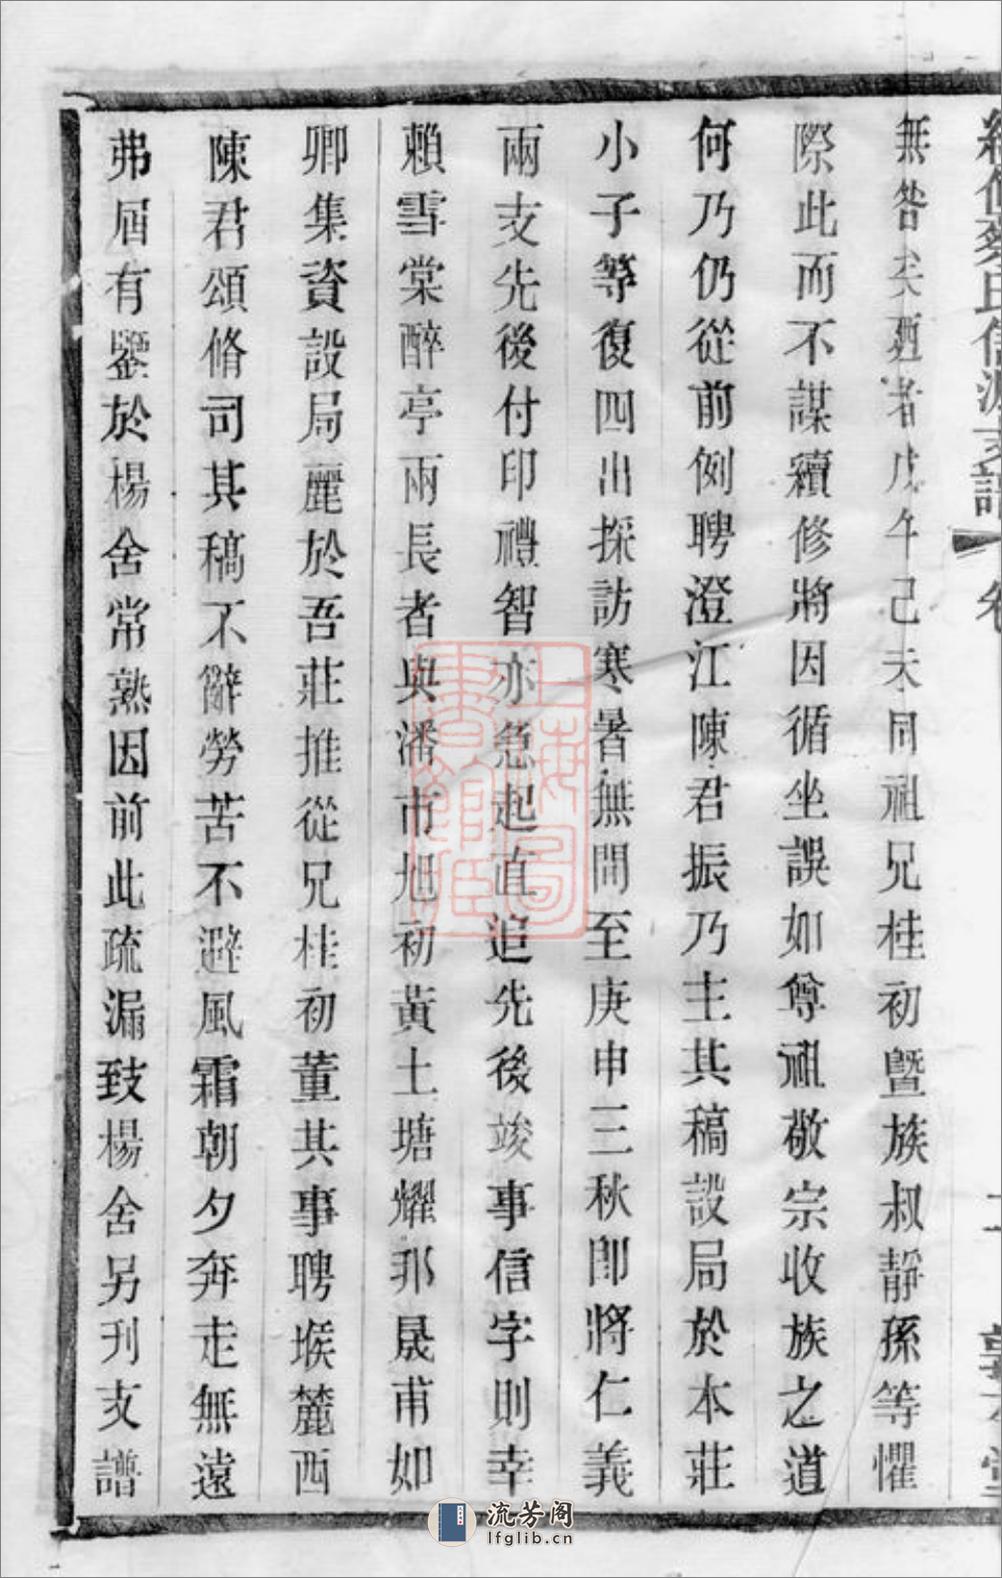 無咎矣廼者戊午己未同祖兄桂初曁族叔靜孫等懼
際此而不謀續修將因循坐誤如尊祖敬宗收族之道
何乃仍從前例聘澄江陳君振乃主其稿設局於本莊
小子等復四出採訪寒暑無間至庚申三秋即將仁義
兩支先後付印禮智亦急起直追先後竣事信字則幸
賴雪棠醉亭兩長者與潘市旭初黃土塘耀邦晟甫如
卿集資設局麗於吾莊推從兄桂初董其事聘堠麓西
陳君頌脩司其稿不辭勞苦不避風霜朝夕奔走無遠
弗屆有鑒於楊舍常熟因前此疏漏致楊舍另刋支譜
上海圖書館藏
流芳阁
lfglib.cn